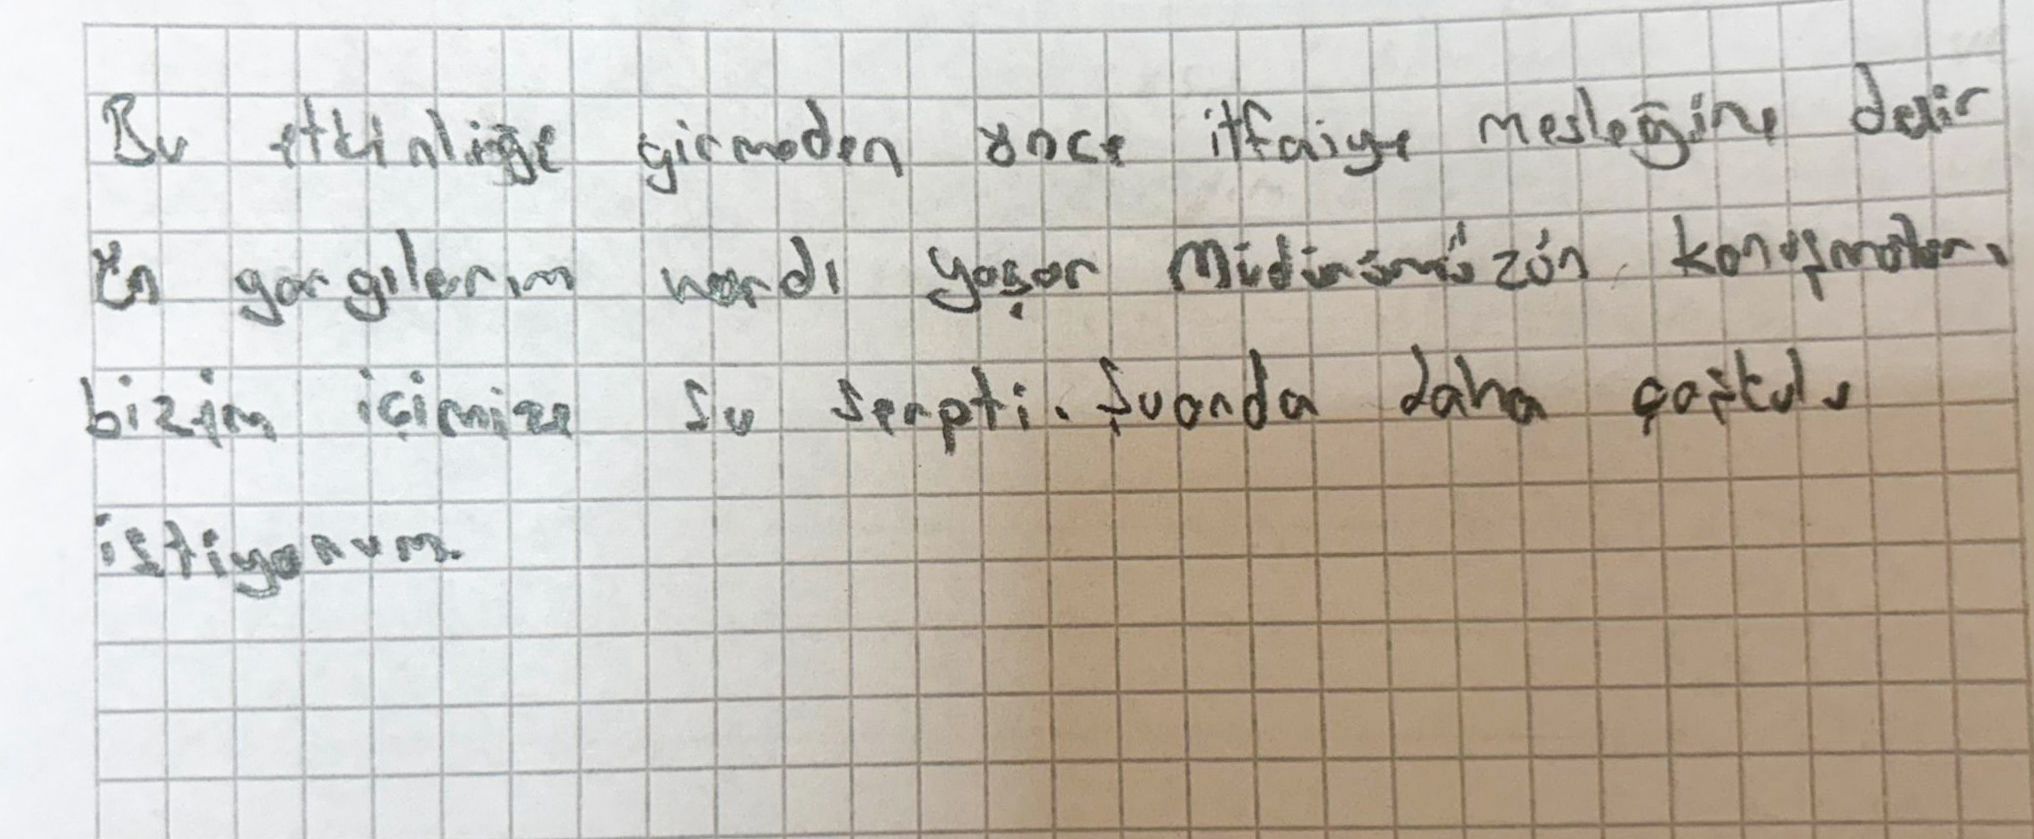 Bu etkinliğe girmeden önce itfaiye mesleğine dair
ön yargılarım vardı yaşar Müdürümüzün konuşmaları
bizim içimize su serpti. Şuanda daha çoşkulu
istiyorum.